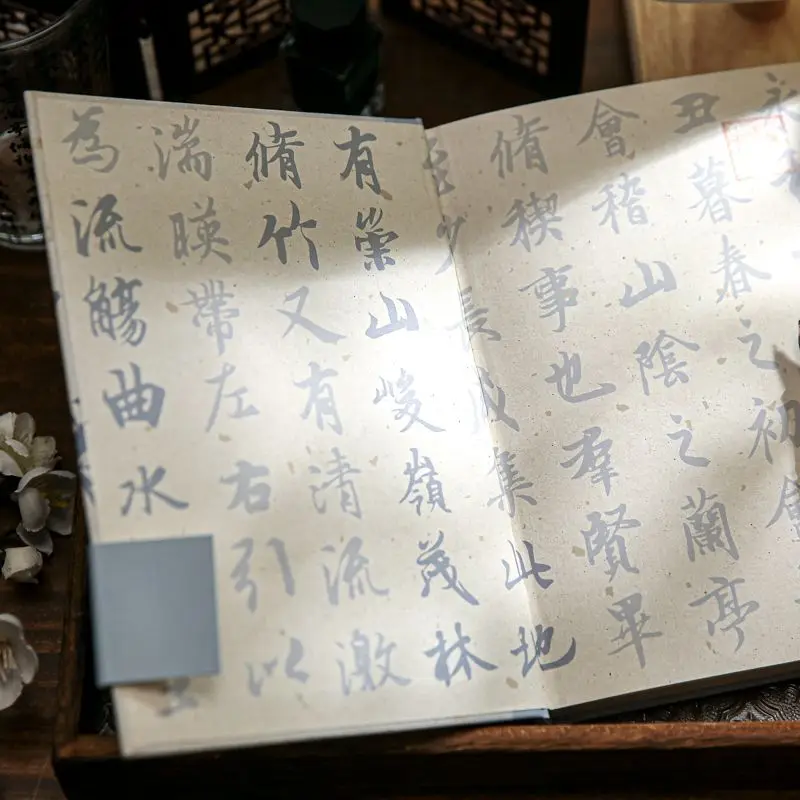 永
丑暮春之初
會稽山陰之蘭亭
脩稧事也羣賢畢
至少長咸集此地
有崇山峻嶺茂林
脩竹又有清流激
湍暎帶左右引以
為流觴曲水